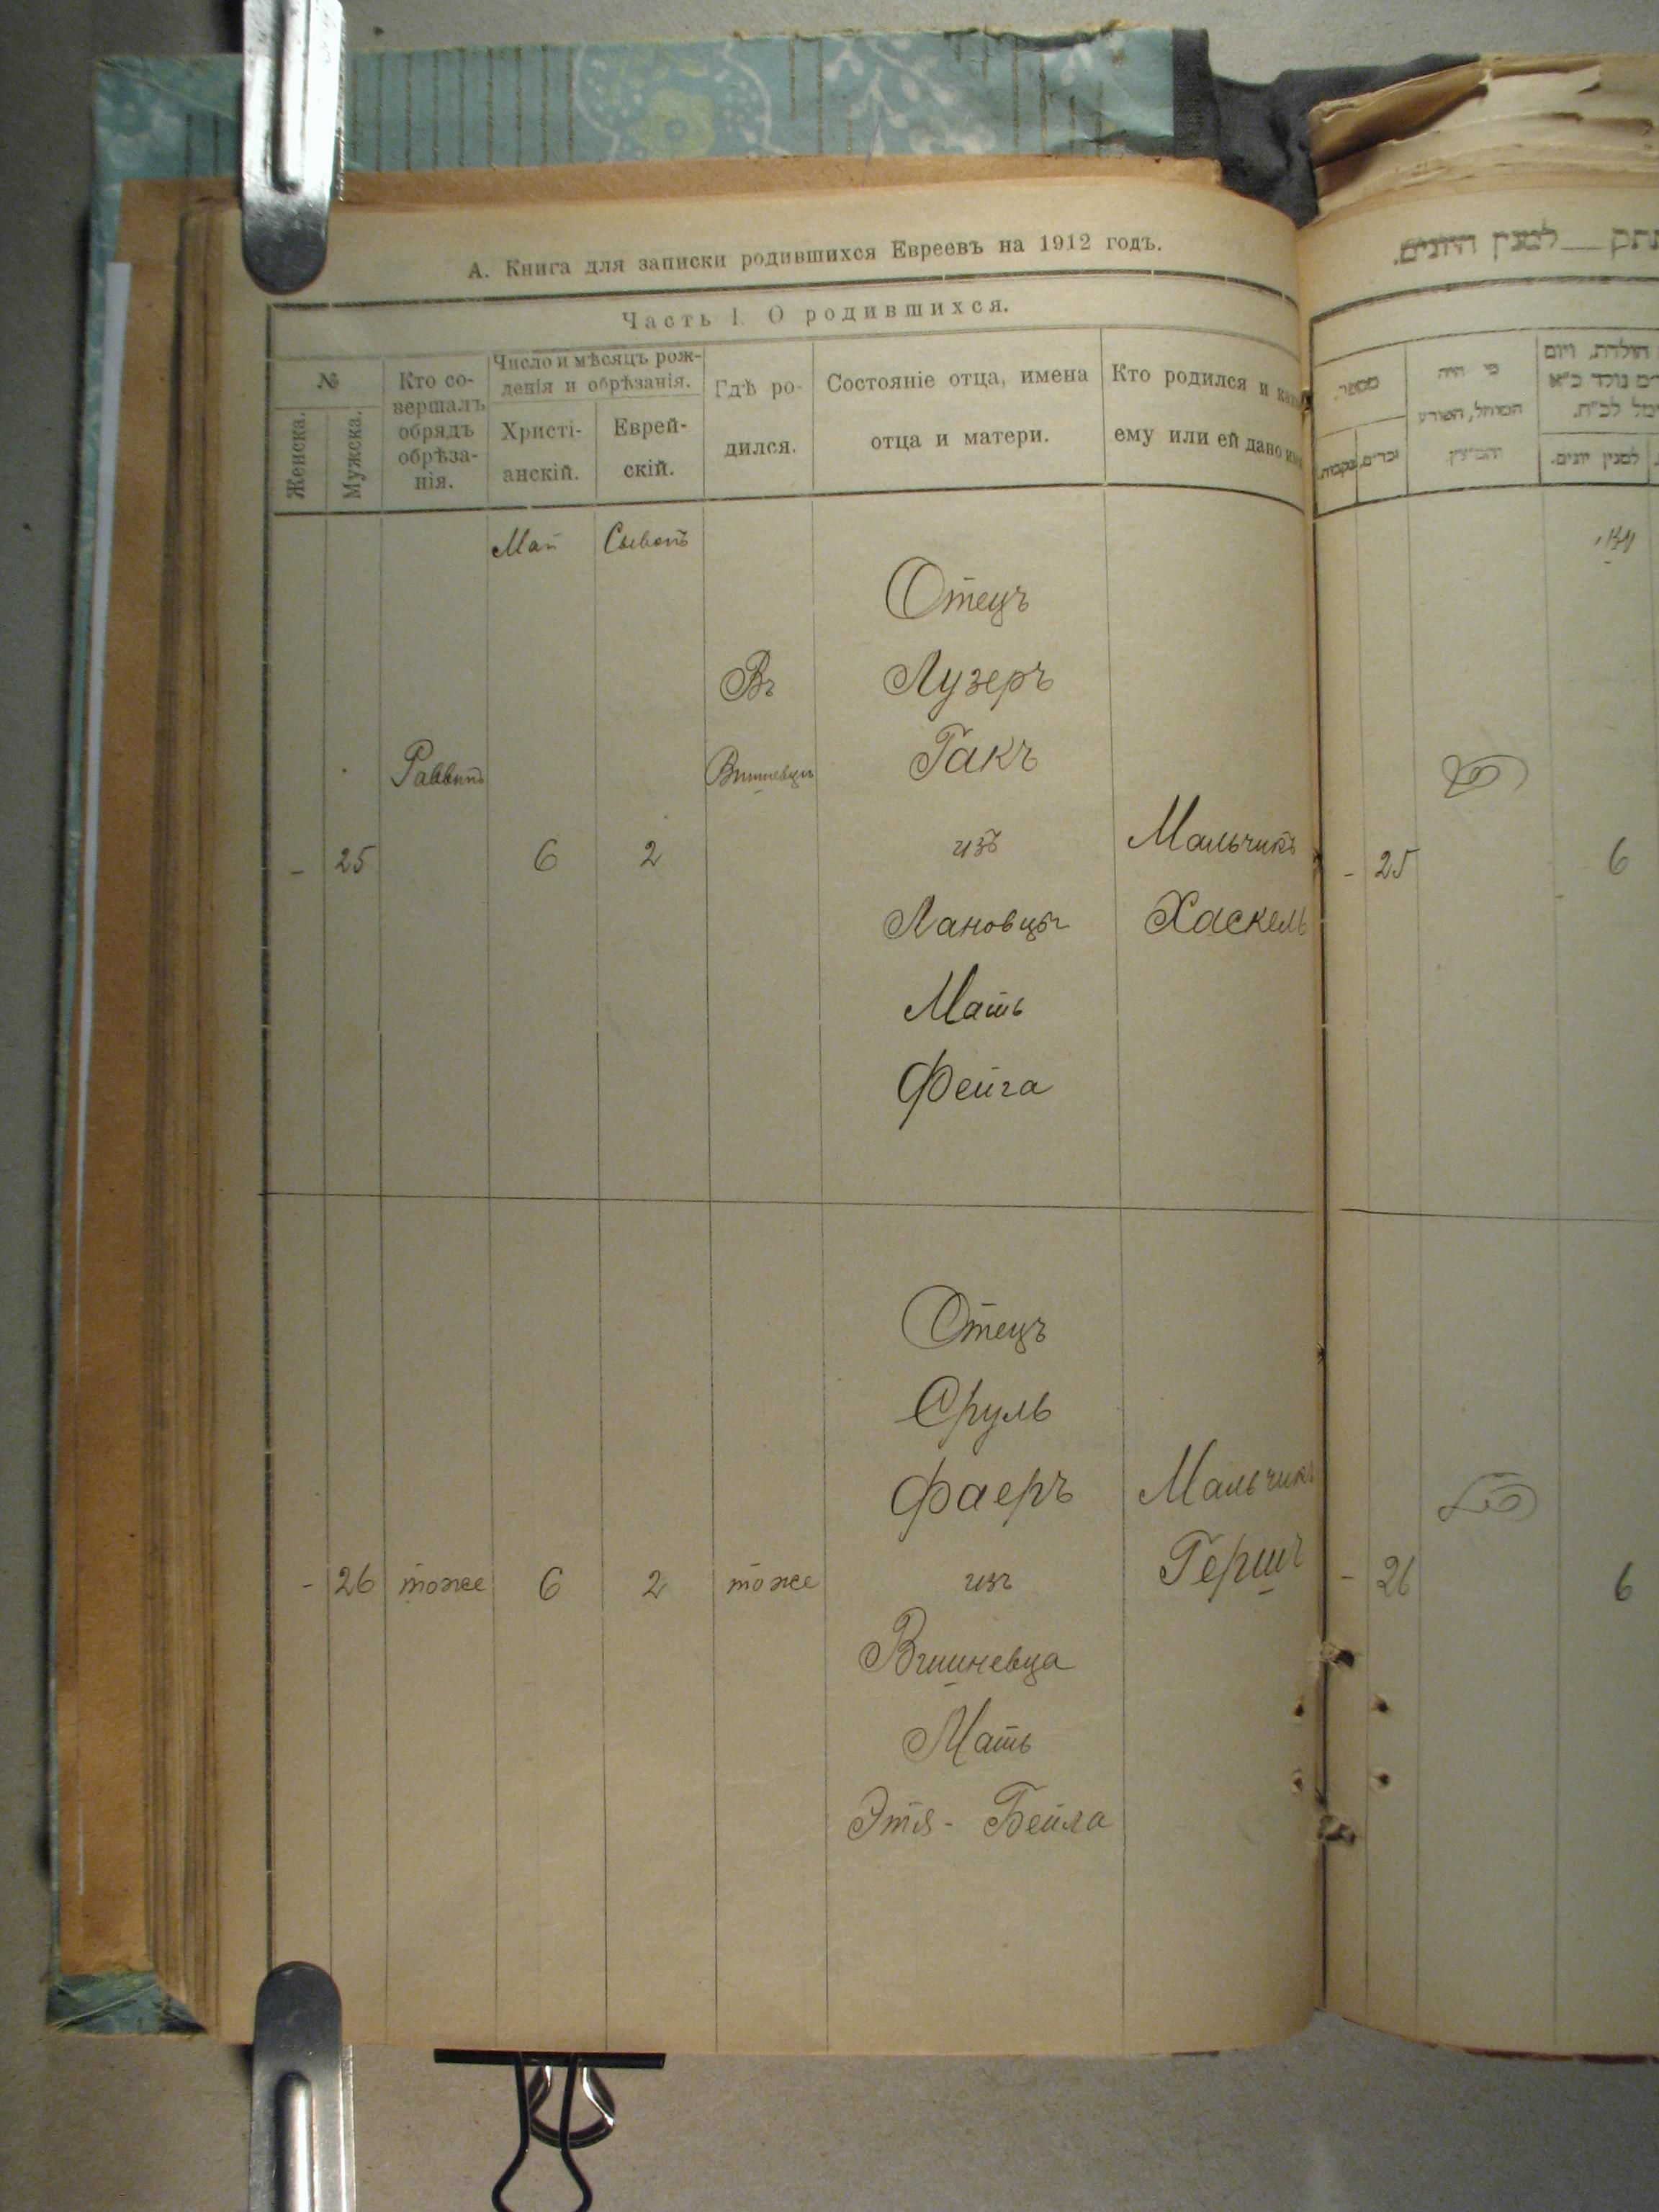 А. Книга для записки родившихся Евреевъ на 1912 годъ.
Часть I. О родившихся.
№
Женска.
Мужска.
Кто со-
вершалъ
обрядъ
обрѣза-
нія.
Число и мѣсяцъ рож-
денія и обрѣзанія.
Христі-
анскій.
Еврей-
скій.
Гдѣ ро-
дился.
Состояніе отца, имена
отца и матери.
Кто родился и
ему или ей дано
Май
Сывонъ
- 25
Раввинъ
6
2
Въ
Вишневцѣ
Отецъ
Лузеръ
Гакъ
изъ
Лановцы
Мать
Фейга
Мальчикъ
Хаскель
- 26 тоже 6 2 тоже
Отецъ
Сруль
Фаеръ
изъ
Вишневца
Мать
Этя - Бейла
Мальчикъ
Гершъ
למנין היונים.
מספר.
זכרים.
נקבות.
מי היה
המוהל, הפורע
והמוצץ.
הולדת, ויום
נולד
למנין יונים.
- 25
6
- 26
6